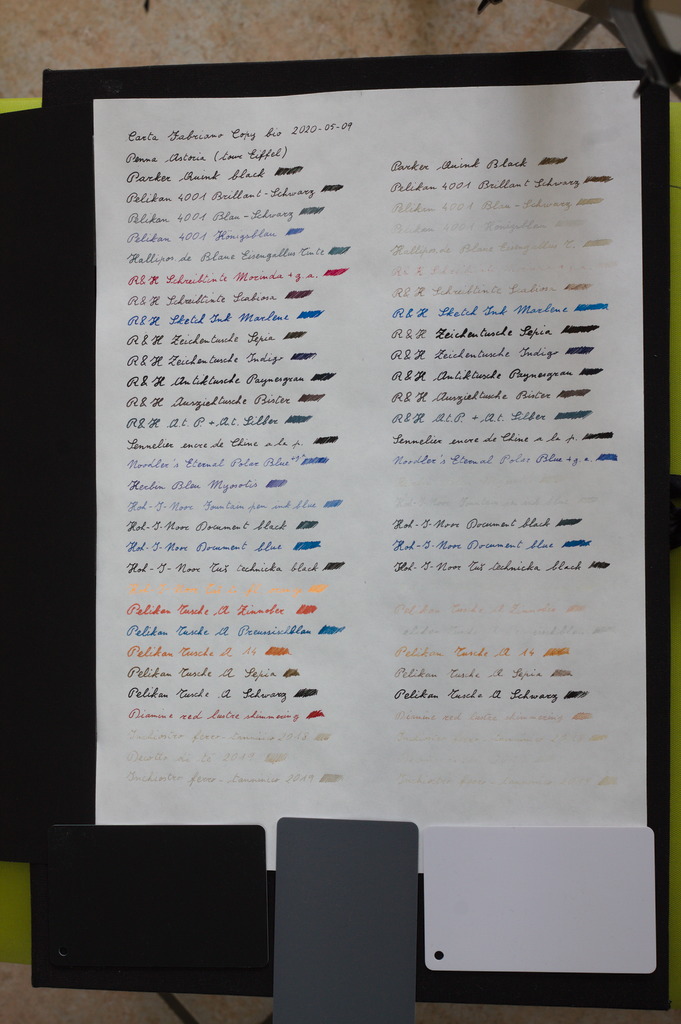 Carta Fabriano Copy bio 2020-05-09
Penna Astoria (tour Eiffel)
Parker Quink black
Pelikan 4001 Brillant-Schwarz
Pelikan 4001 Blau-Schwarz
Pelikan 4001 Königsblau
Rallipos de Blaue Eisengallus Tinte
R&K Schreibtinte Morinda + g.a.
R&K Schreibtinte Scabiosa
R&K Sketch Ink Marlene
R&K Zeichentusche Sepia
R&K Zeichentusche Indigo
R&K Antiktusche Paynesgrau
R&K Ausziehtusche Bister
R&K At.P + At. Silber
Sennelier encre de Chine a la p.
Noodler's Eternal Polar Blue
Herbin Bleu Myosotis
Koh-I-Noor Fountain pen ink blue
Koh-I-Noor Document black
Koh-I-Noor Document blue
Koh-I-Noor Tuš technicka black
Koh-I-Noor
Pelikan Tusche A Zinnober
Pelikan Tusche A Preussischblau
Pelikan Tusche A 14
Pelikan Tusche A Sepia
Pelikan Tusche A Schwarz
Diamine red lustre shimmering
Inchiostro ferro-tannnico 2018
2019
Inchiostro ferro-tannnico 2019
Parker Quink Black
Pelikan 4001 Brillant Schwarz
Pelikan 4001 Blau-Schwarz
Pelikan 4001 Königsblau
de Blaue Eisengallus T.
R&K Schreibtinte Morinda
R&K Schreibtinte Scabiosa
R&K Sketch Ink Marlene
R&K Zeichentusche Sepia
R&K Zeichentusche Indigo
R&K Antiktusche Paynesgrau
R&K Ausziehtusche Bister
R&K At.P + At. Silber
Sennelier encre de Chine a la p.
Noodler's Eternal Polar Blue + g.a.
Koh-I-Noor
Koh-I-Noor Document black
Koh-I-Noor Document blue
Koh-I-Noor Tuš technicka black
Pelikan Tusche A Zinnober
Pelikan Tusche A 14
Pelikan Tusche A Sepia
Pelikan Tusche A Schwarz
Diamine red lustre shimmering
Inchiostro
Inchiostro ferro-